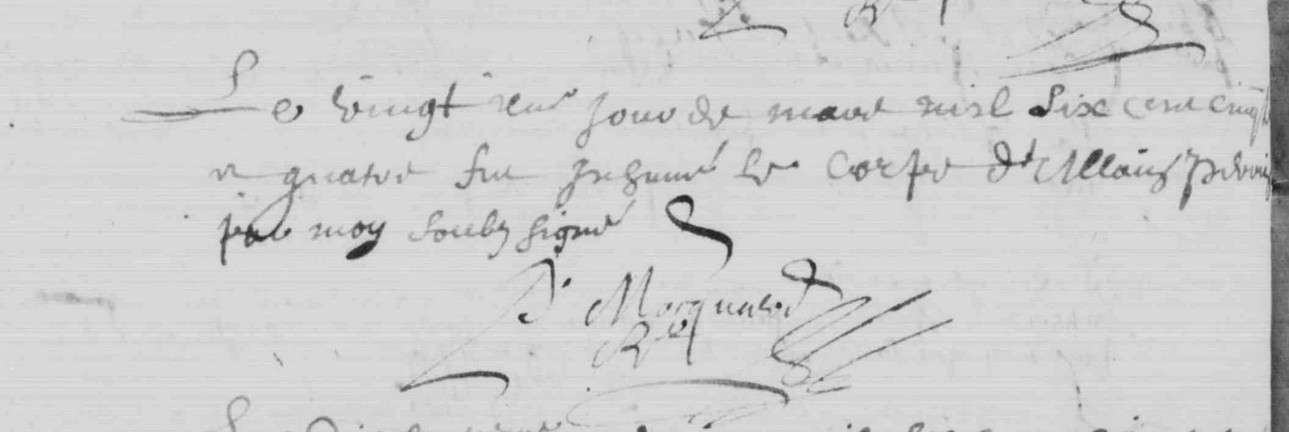 Le vingt jour de mars mil six cent cinqt
et quatre fut Inhumé le Corps d'Allain
par moy soubz signé